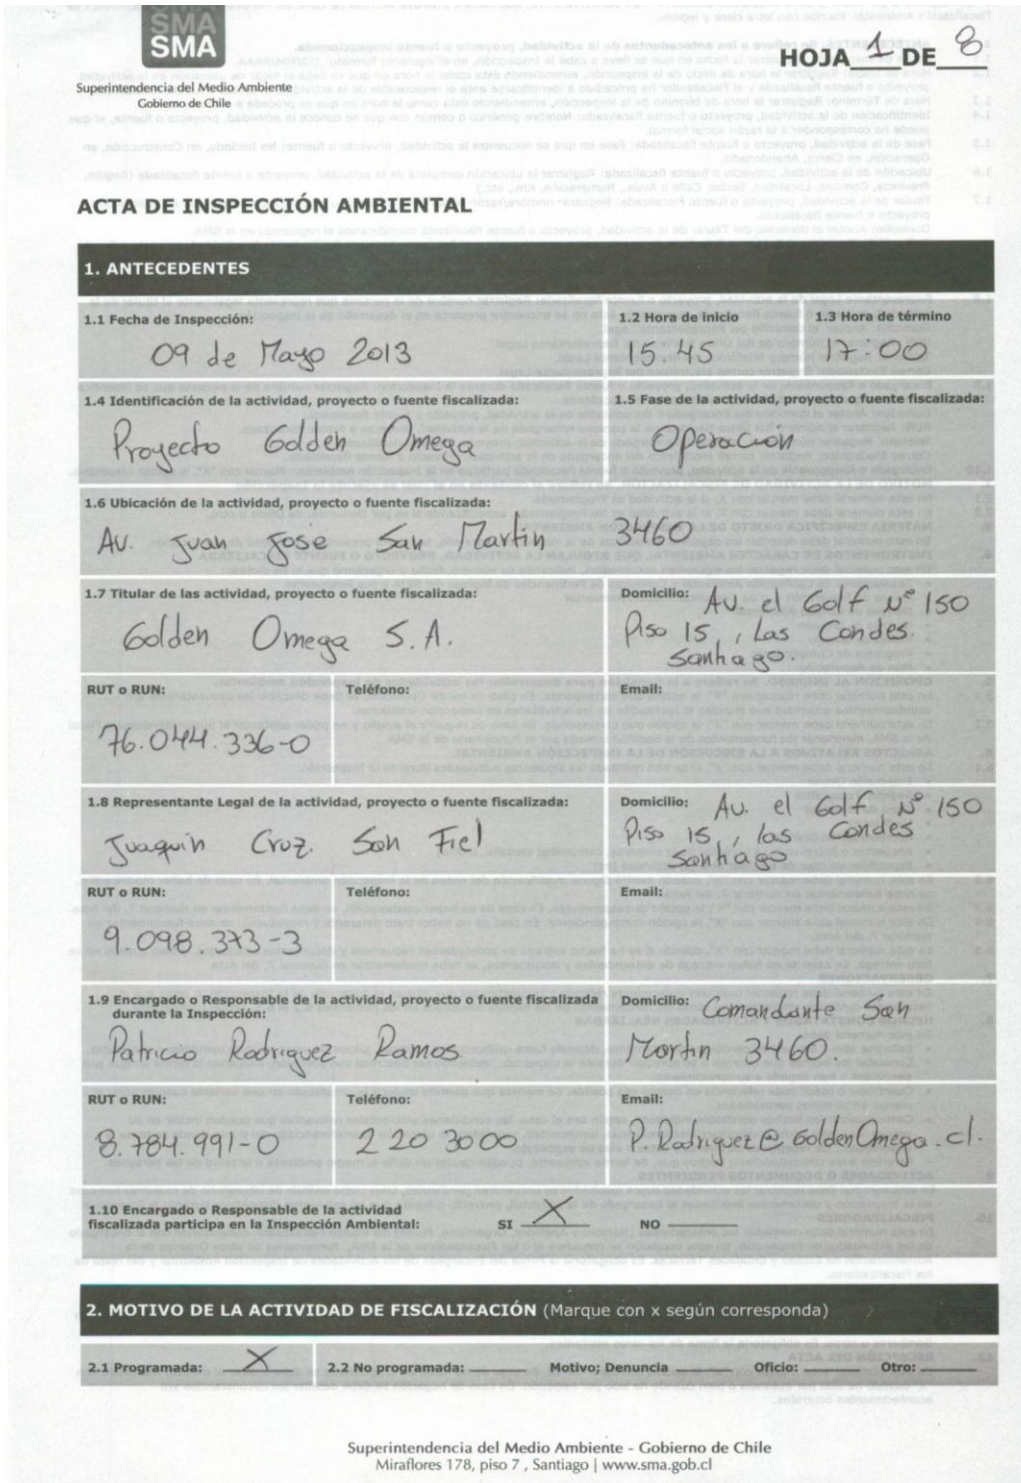 SMA
SMA
Superintendencia del Medio Ambiente
Gobierno de Chile
HOJA 1 DE 8
ACTA DE INSPECCIÓN AMBIENTAL
1. ANTECEDENTES
1.1 Fecha de Inspección:
09 de Mayo 2013
1.2 Hora de inicio
15.45
1.3 Hora de término
17:00
1.4 Identificación de la actividad, proyecto o fuente fiscalizada:
Proyecto Golden Omega
1.5 Fase de la actividad, proyecto o fuente fiscalizada:
Operación
1.6 Ubicación de la actividad, proyecto o fuente fiscalizada:
Av. Juan Jose San Martin 3460
1.7 Titular de las actividad, proyecto o fuente fiscalizada:
Golden Omega S.A.
Domicilio: Av. el Golf N° 150
Piso 15, Las Condes.
Santiago.
RUT o RUN:
76.044.336-0
Teléfono:
Email:
1.8 Representante Legal de la actividad, proyecto o fuente fiscalizada:
Juaquin Cruz. San Fiel
Domicilio: Av. el Golf N° 150
Piso 15, las Condes
Santiago
RUT o RUN:
9.098.373-3
Teléfono:
Email:
1.9 Encargado o Responsable de la actividad, proyecto o fuente fiscalizada
durante la Inspección:
Patricio Rodriguez Ramos
Domicilio: Comandante San
Martin 3460.
RUT o RUN:
8.784.991-0
Teléfono:
2 20 3000
Email:
P.Rodriguez@GoldenOmega.cl.
1.10 Encargado o Responsable de la actividad
fiscalizada participa en la Inspección Ambiental: SI X NO
2. MOTIVO DE LA ACTIVIDAD DE FISCALIZACIÓN (Marque con x según corresponda)
2.1 Programada: X 2.2 No programada: Motivo; Denuncia Oficio: Otro:
Superintendencia del Medio Ambiente - Gobierno de Chile
Miraflores 178, piso 7 , Santiago | www.sma.gob.cl